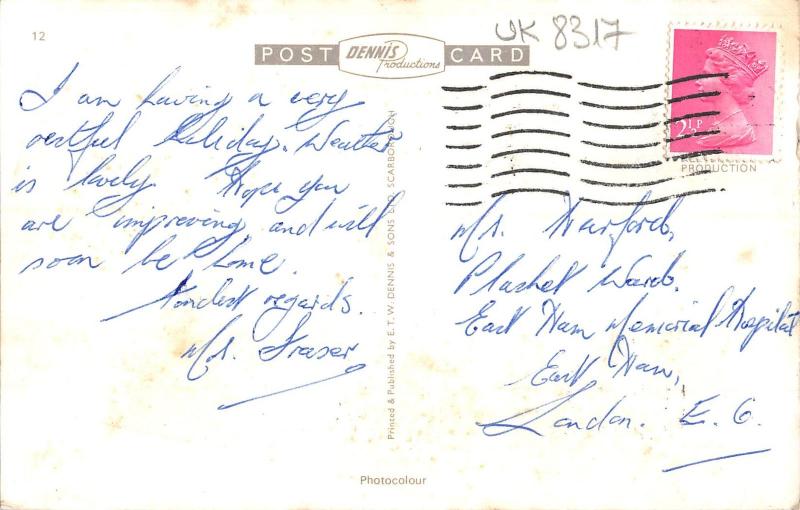 12
POST DENNIS Productions CARD
UK 8317
2½P
PRODUCTION
I am having a very
restful holiday. Weather
is lovely. Hope you
are improving and will
soon be home.
Kindest regards.
Mrs. Fraser
Printed & Published by E.T.W. DENNIS & SONS LTD. SCARBOROUGH
Mrs. Harford,
Plashet Ward.
East Ham Memorial Hospital
East Ham,
London. E. 6.
Photocolour